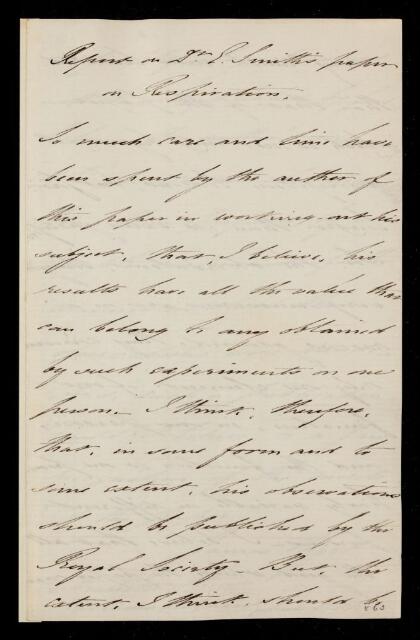 Report on Dr. E. Smith's paper
on Respiration.
So much care and time have
been spent by the author of
this paper in working-out his
subject, that, I believe, his
results have all the value that
can belong to any obtained
by such experiments on one
person. I think, therefore,
that, in some form and to
some extent, his observations
should be published by the
Royal Society - But, the
extent, I think, should be